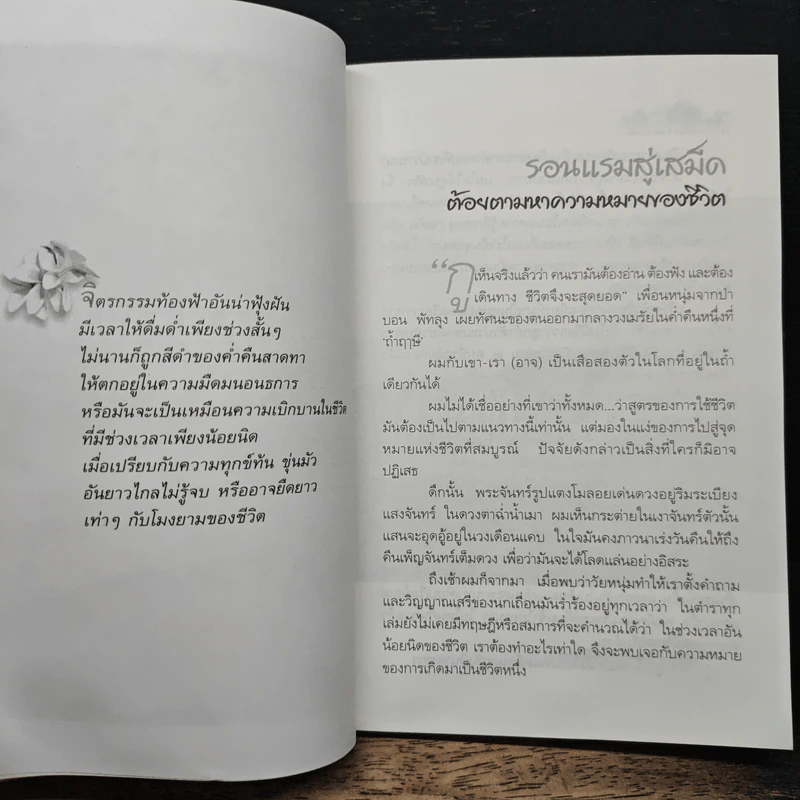 จิตรกรรมท้องฟ้าอันน่าฟุ้งฝัน
มีเวลาให้ดื่มด่ำเพียงช่วงสั้นๆ
ไม่นานก็ถูกสีดำของค่ำคืนสาดทา
ให้ตกอยู่ในความมืดมนอนธการ
หรือมันจะเป็นเหมือนความเบิกบานในชีวิต
ที่มีช่วงเวลาเพียงน้อยนิด
เมื่อเปรียบกับความทุกข์ทัน ขุ่นมัว
อันยาวไกลไม่รู้จบ หรืออาจยืดยาว
เท่าๆ กับโมงยามของชีวิต
รอนแรมสู่เสม็ด
ต้อยตามหาความหมายของชีวิต
"กูเห็นจริงแล้วว่า คนเรามันต้องอ่าน ต้องฟัง และต้อง
เดินทาง ชีวิตจึงจะสุดยอด" เพื่อนหนุ่มจากป่า
บอน พัทลุง เผยทัศนะของตนออกมากลางวงเมรัยในค่ำคืนหนึ่งที่
'ถ้ำฤๅษี'
ผมกับเขา-เรา (อาจ) เป็นเสือสองตัวในโลกที่อยู่ในถ้ำ
เดียวกันได้
ผมไม่ได้เชื่ออย่างที่เขาว่าทั้งหมด...ว่าสูตรของการใช้ชีวิต
มันต้องเป็นไปตามแนวทางนี้เท่านั้น แต่มองในแง่ของการไปสู่จุด
หมายแห่งชีวิตที่สมบูรณ์ ปัจจัยดังกล่าวเป็นสิ่งที่ใครก็มิอาจ
ปฏิเสธ
ดึกนั้น พระจันทร์รูปแตงโมลอยเด่นดวงอยู่ริมระเบียง
แสงจันทร์ ในดวงตาฉ่ำน้ำเมา ผมเห็นกระต่ายในเงาจันทร์ตัวนั้น
แสนจะอุดอู้อยู่ในวงเดือนแคบ ในใจมันคงภาวนาเร่งวันคืนให้ถึง
คืนเพ็ญจันทร์เต็มดวง เพื่อว่ามันจะได้โลดแล่นอย่างอิสระ
ถึงเช้าผมก็จากมา เมื่อพบว่าวัยหนุ่มทำให้เราตั้งคำถาม
และวิญญาณเสรีของนกเถื่อนมันร่ำร้องอยู่ทุกเวลาว่า ในตำราทุก
เล่มยังไม่เคยมีทฤษฎีหรือสมการที่จะคำนวณได้ว่า ในช่วงเวลาอัน
น้อยนิดของชีวิต เราต้องทำอะไรเท่าใด จึงจะพบเจอกับความหมาย
ของการเกิดมาเป็นชีวิตหนึ่ง